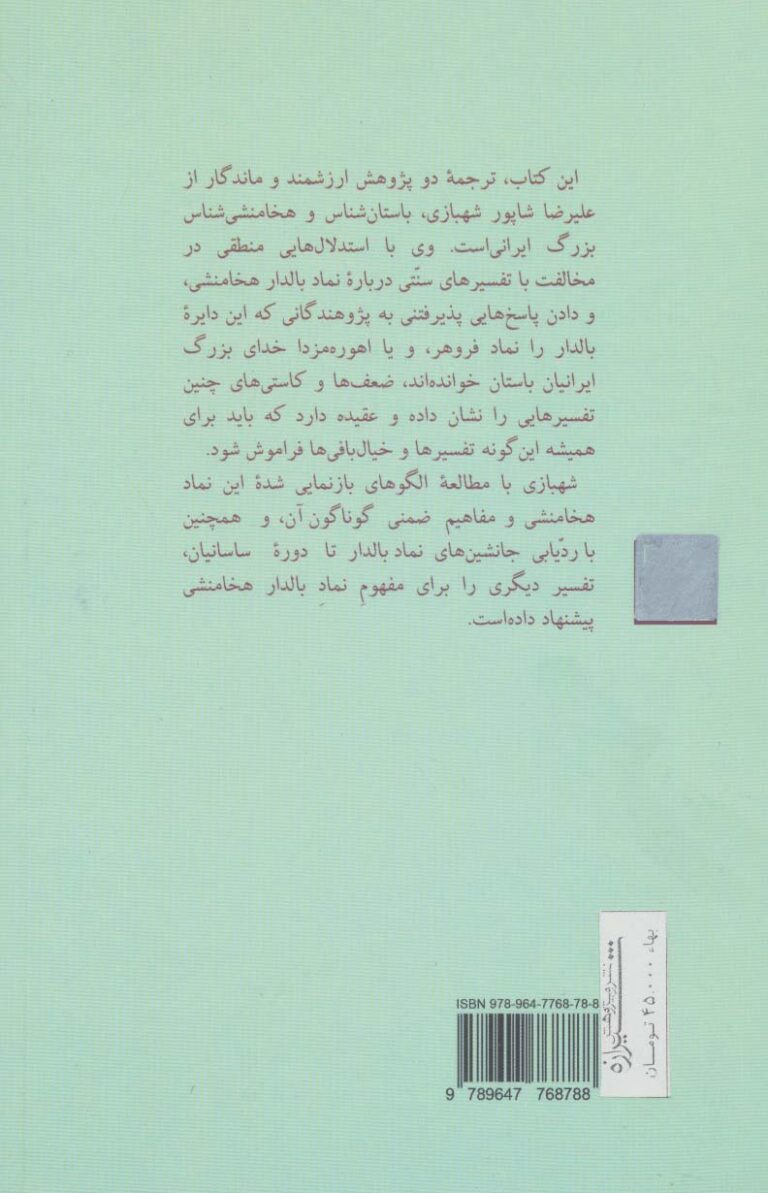 این کتاب، ترجمهٔ دو پژوهش ارزشمند و ماندگار از
علیرضا شاپور شهبازی، باستان‌شناس و هخامنشی‌شناس
بزرگ ایرانی‌است. وی با استدلال‌هایی منطقی در
مخالفت با تفسیرهای سنّتی دربارهٔ نماد بالدار هخامنشی،
و دادن پاسخ‌هایی پذیرفتنی به پژوهندگانی که این دایرهٔ
بالدار را نماد فروهر، و یا اهوره‌مزدا خدای بزرگ
ایرانیان باستان خوانده‌اند، ضعف‌ها و کاستی‌های چنین
تفسیرهایی را نشان داده و عقیده دارد که باید برای
همیشه این‌گونه تفسیرها و خیال‌بافی‌ها فراموش شود.
شهبازی با مطالعهٔ الگوهای بازنمایی شدهٔ این نماد
هخامنشی و مفاهیم ضمنی گوناگون آن، و همچنین
با ردّیابی جانشین‌های نماد بالدار تا دورهٔ ساسانیان،
تفسیر دیگری را برای مفهومِ نمادِ بالدار هخامنشی
پیشنهاد داده‌است.
ISBN 978-964-7768-78-8
9 789647 768788
نشر و پژوهش
شیرازه
بهاء ۴۵.۰۰۰ تومان